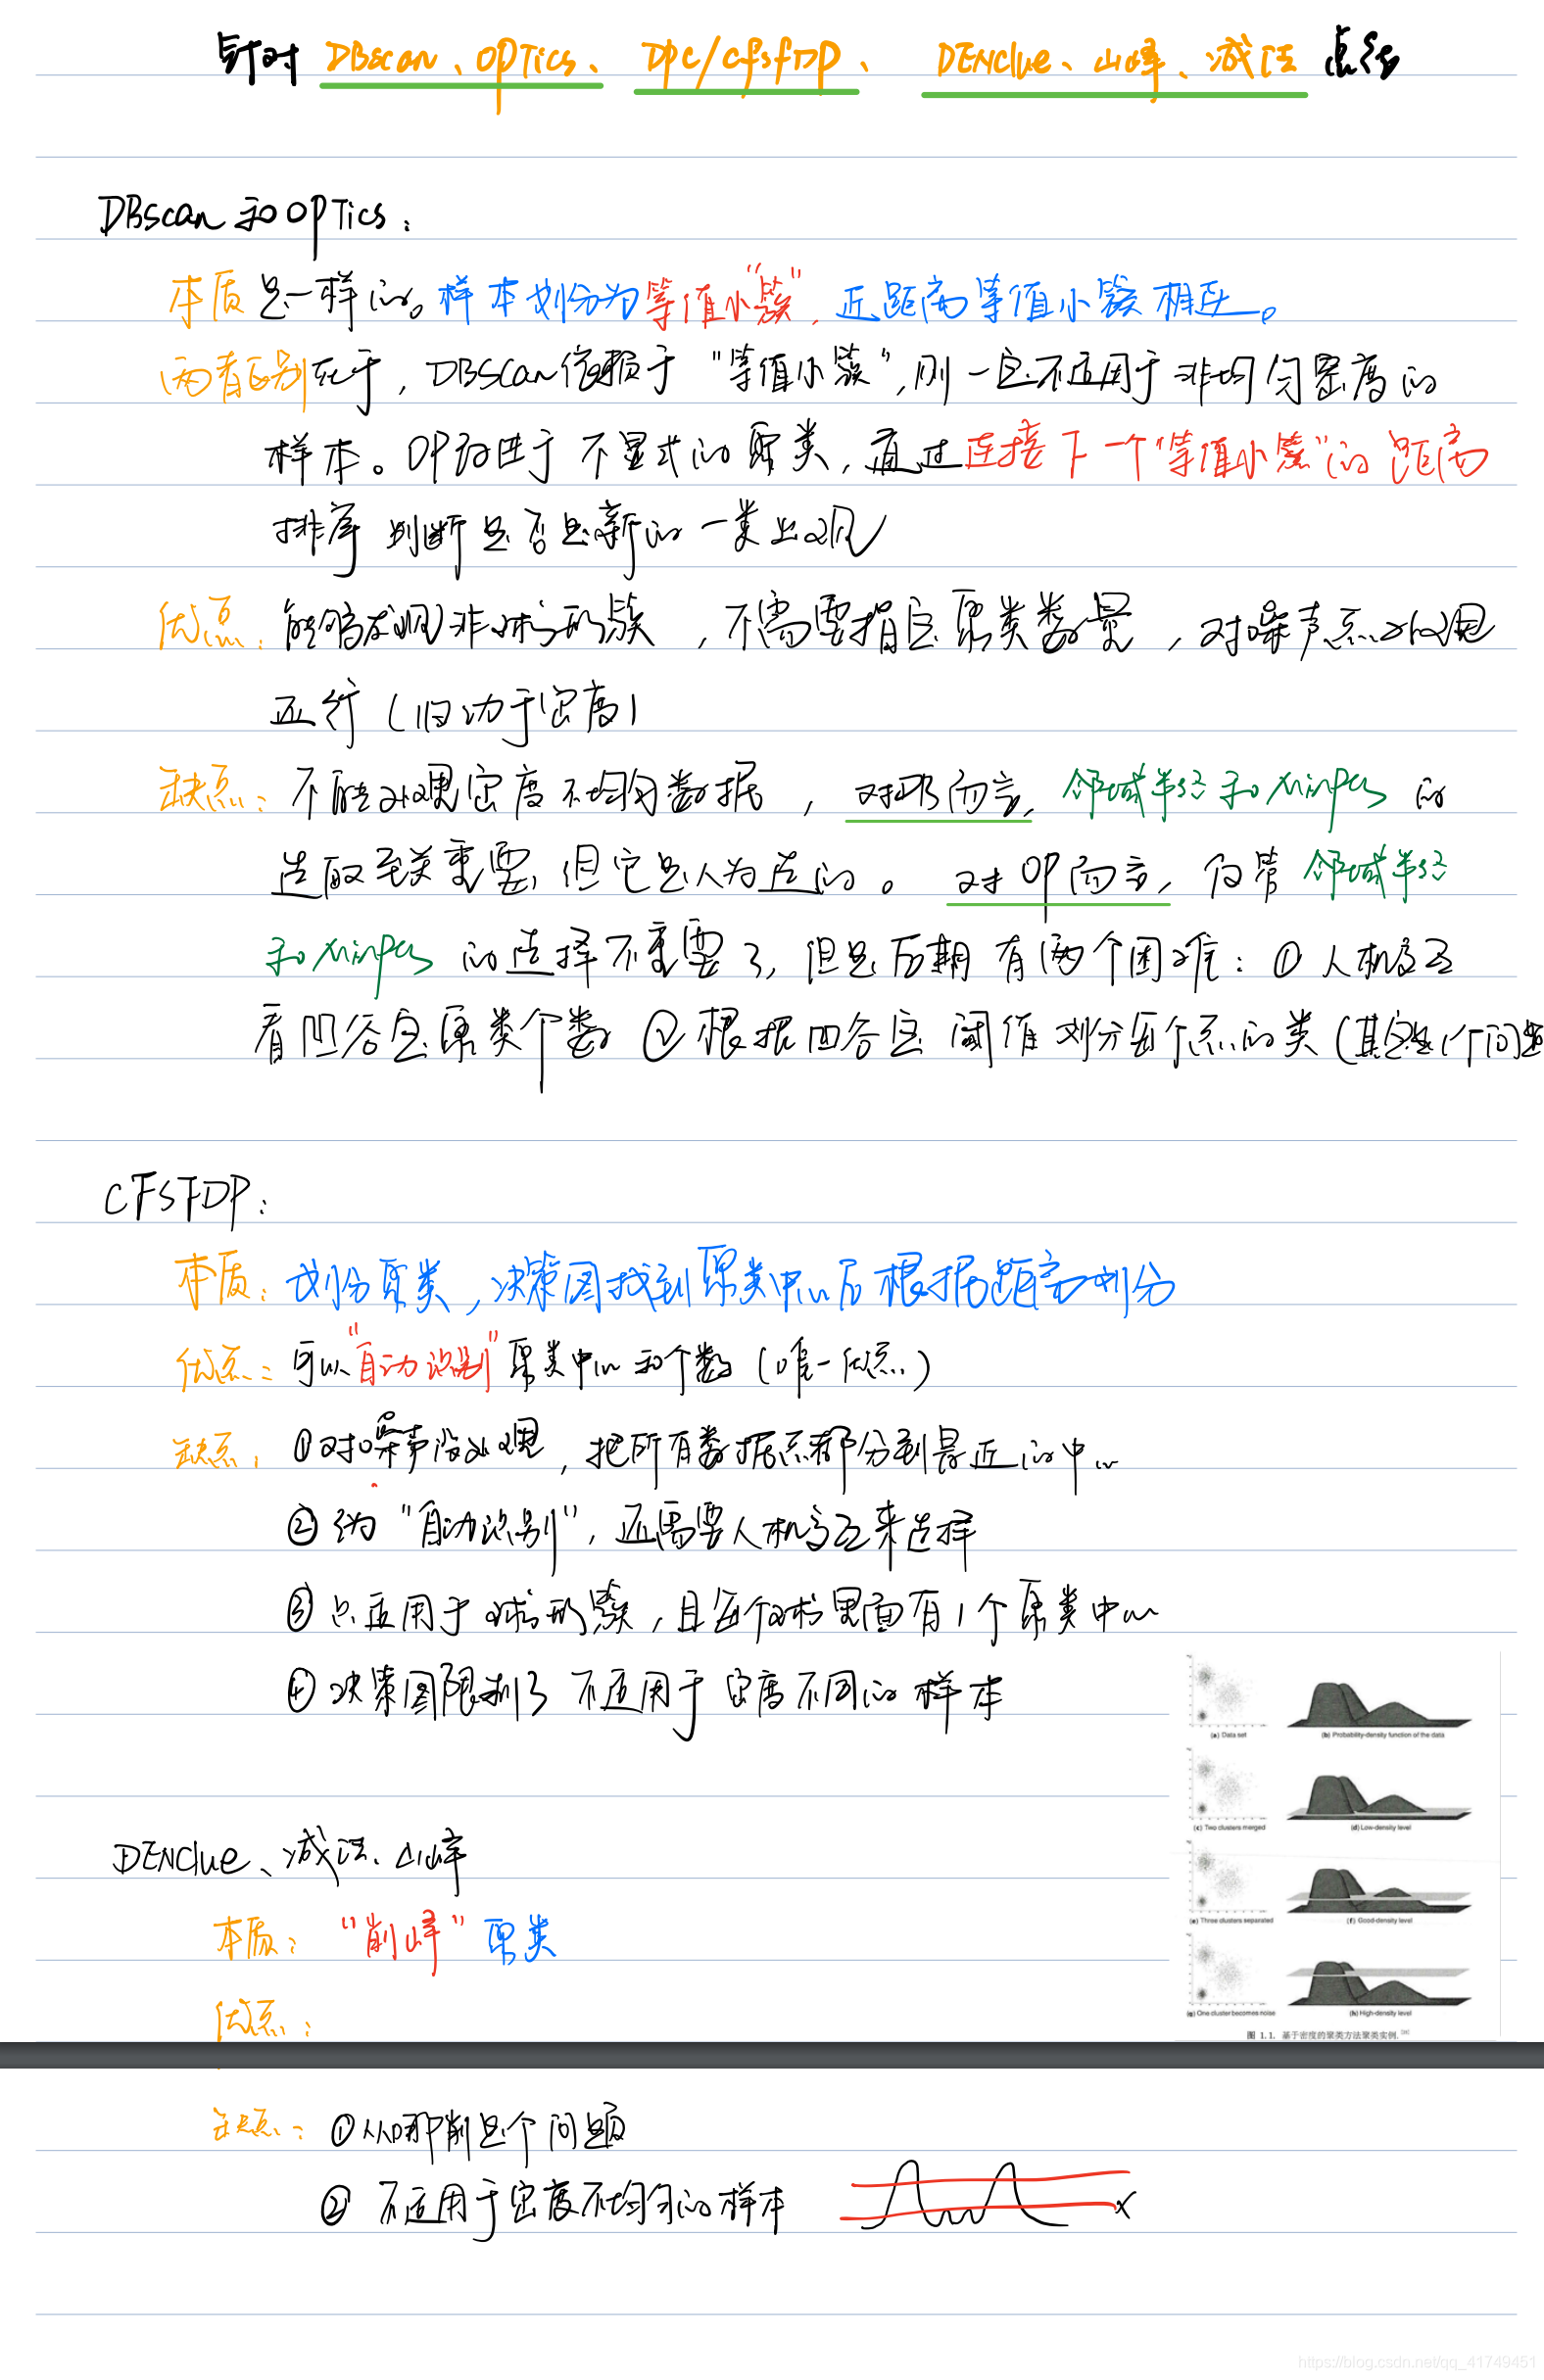 针对 DBscan、OPTics、DPC/cfsfDP、DENclue、山峰、减法 总结
DBscan 和 OPTics:
本质是一样的。样本划分为等值小“簇”，近距离等值小簇相连。
两者区别在于，DBSCan依赖于“等值小簇”，则一定不适用于非均匀密度的
样本。OP改进于不显式的聚类，通过连接下一个“等值小簇”的距离
排序 判断是否是新的一类出现
优点: 能够发现非球形簇，不需要指定聚类数量，对噪声点处理
还行（归功于密度）
缺点: 不能处理密度不均匀数据，对DB而言，邻域半径和Minpts的
选取至关重要，但它是人为选的。对OP而言，尽管邻域半径
和Minpts的选择不重要了，但是后期有两个困难: ①人机交互
看凹谷定聚类个数 ②根据凹谷定阈值划分每个点的类（其实是1个问题
CFSFDP:
本质: 划分聚类，决策图找到聚类中心后根据距离划分
优点: 可以“自动识别”聚类中心和个数（唯一优点）
缺点: ①对噪声没处理，把所有数据点都分到最近的中心
②伪“自动识别”，还需要人机交互来选择
③只适用于球形簇，且每个球里面有1个聚类中心
④决策图限制了不适用于密度不同的样本
(a) Data set
(b) Probability-density function of the data
(c) Two clusters merged
(d) Low-density level
(e) Three clusters separated
(f) Good-density level
(g) One cluster becomes noise
(h) High-density level
图 1.1. 基于密度的聚类方法聚类实例.
DENclue、减法、山峰
本质: “削峰”聚类
优点:
缺点: ①从哪削是个问题
②不适用于密度不均匀的样本
x
https://blog.csdn.net/qq_41749451